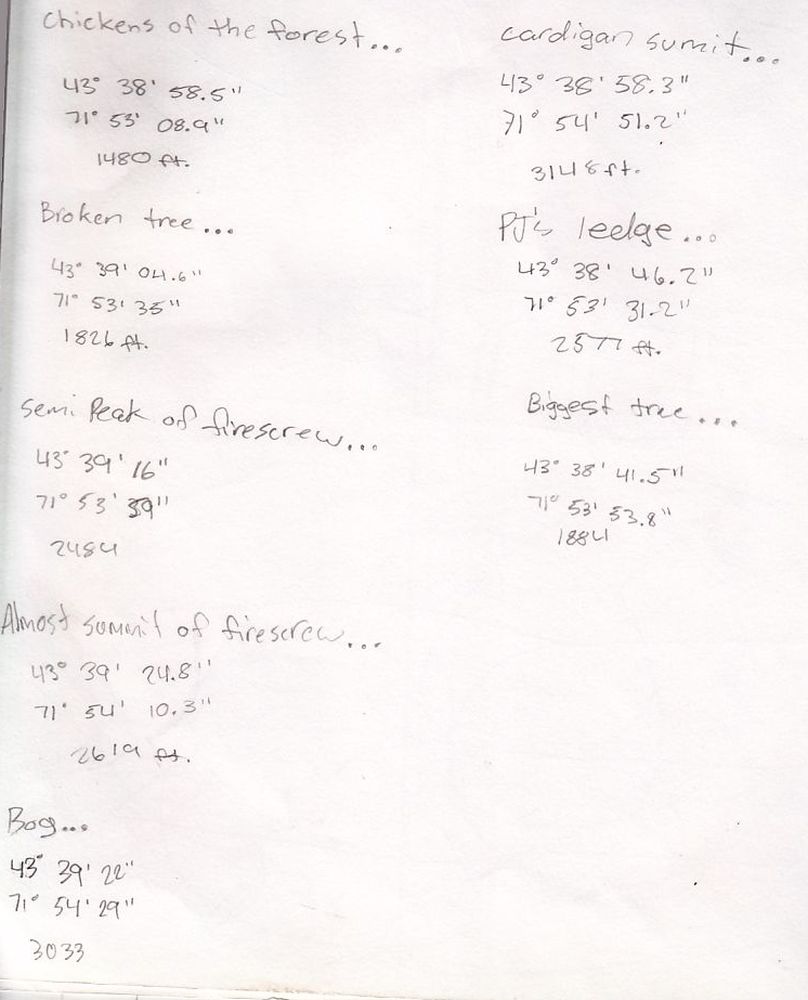 Chickens of the forest...
43° 38' 58.5"
71° 53' 08.9"
1480 ft.
Broken tree...
43° 39' 04.6"
71° 53' 35"
1826 ft.
Semi Peak of firescrew...
43° 39' 16"
71° 53' 39"
2484
Almost summit of firescrew...
43° 39' 24.8"
71° 54' 10.3"
2619 ft.
Bog...
43° 39' 22"
71° 54' 29"
3033
cardigan sumit...
43° 38' 58.3"
71° 54' 51.2"
3148 ft.
PJ's leedge...
43° 38' 46.2"
71° 53' 31.2"
2577 ft.
Biggest tree...
43° 38' 41.5"
71° 53' 53.8"
1884